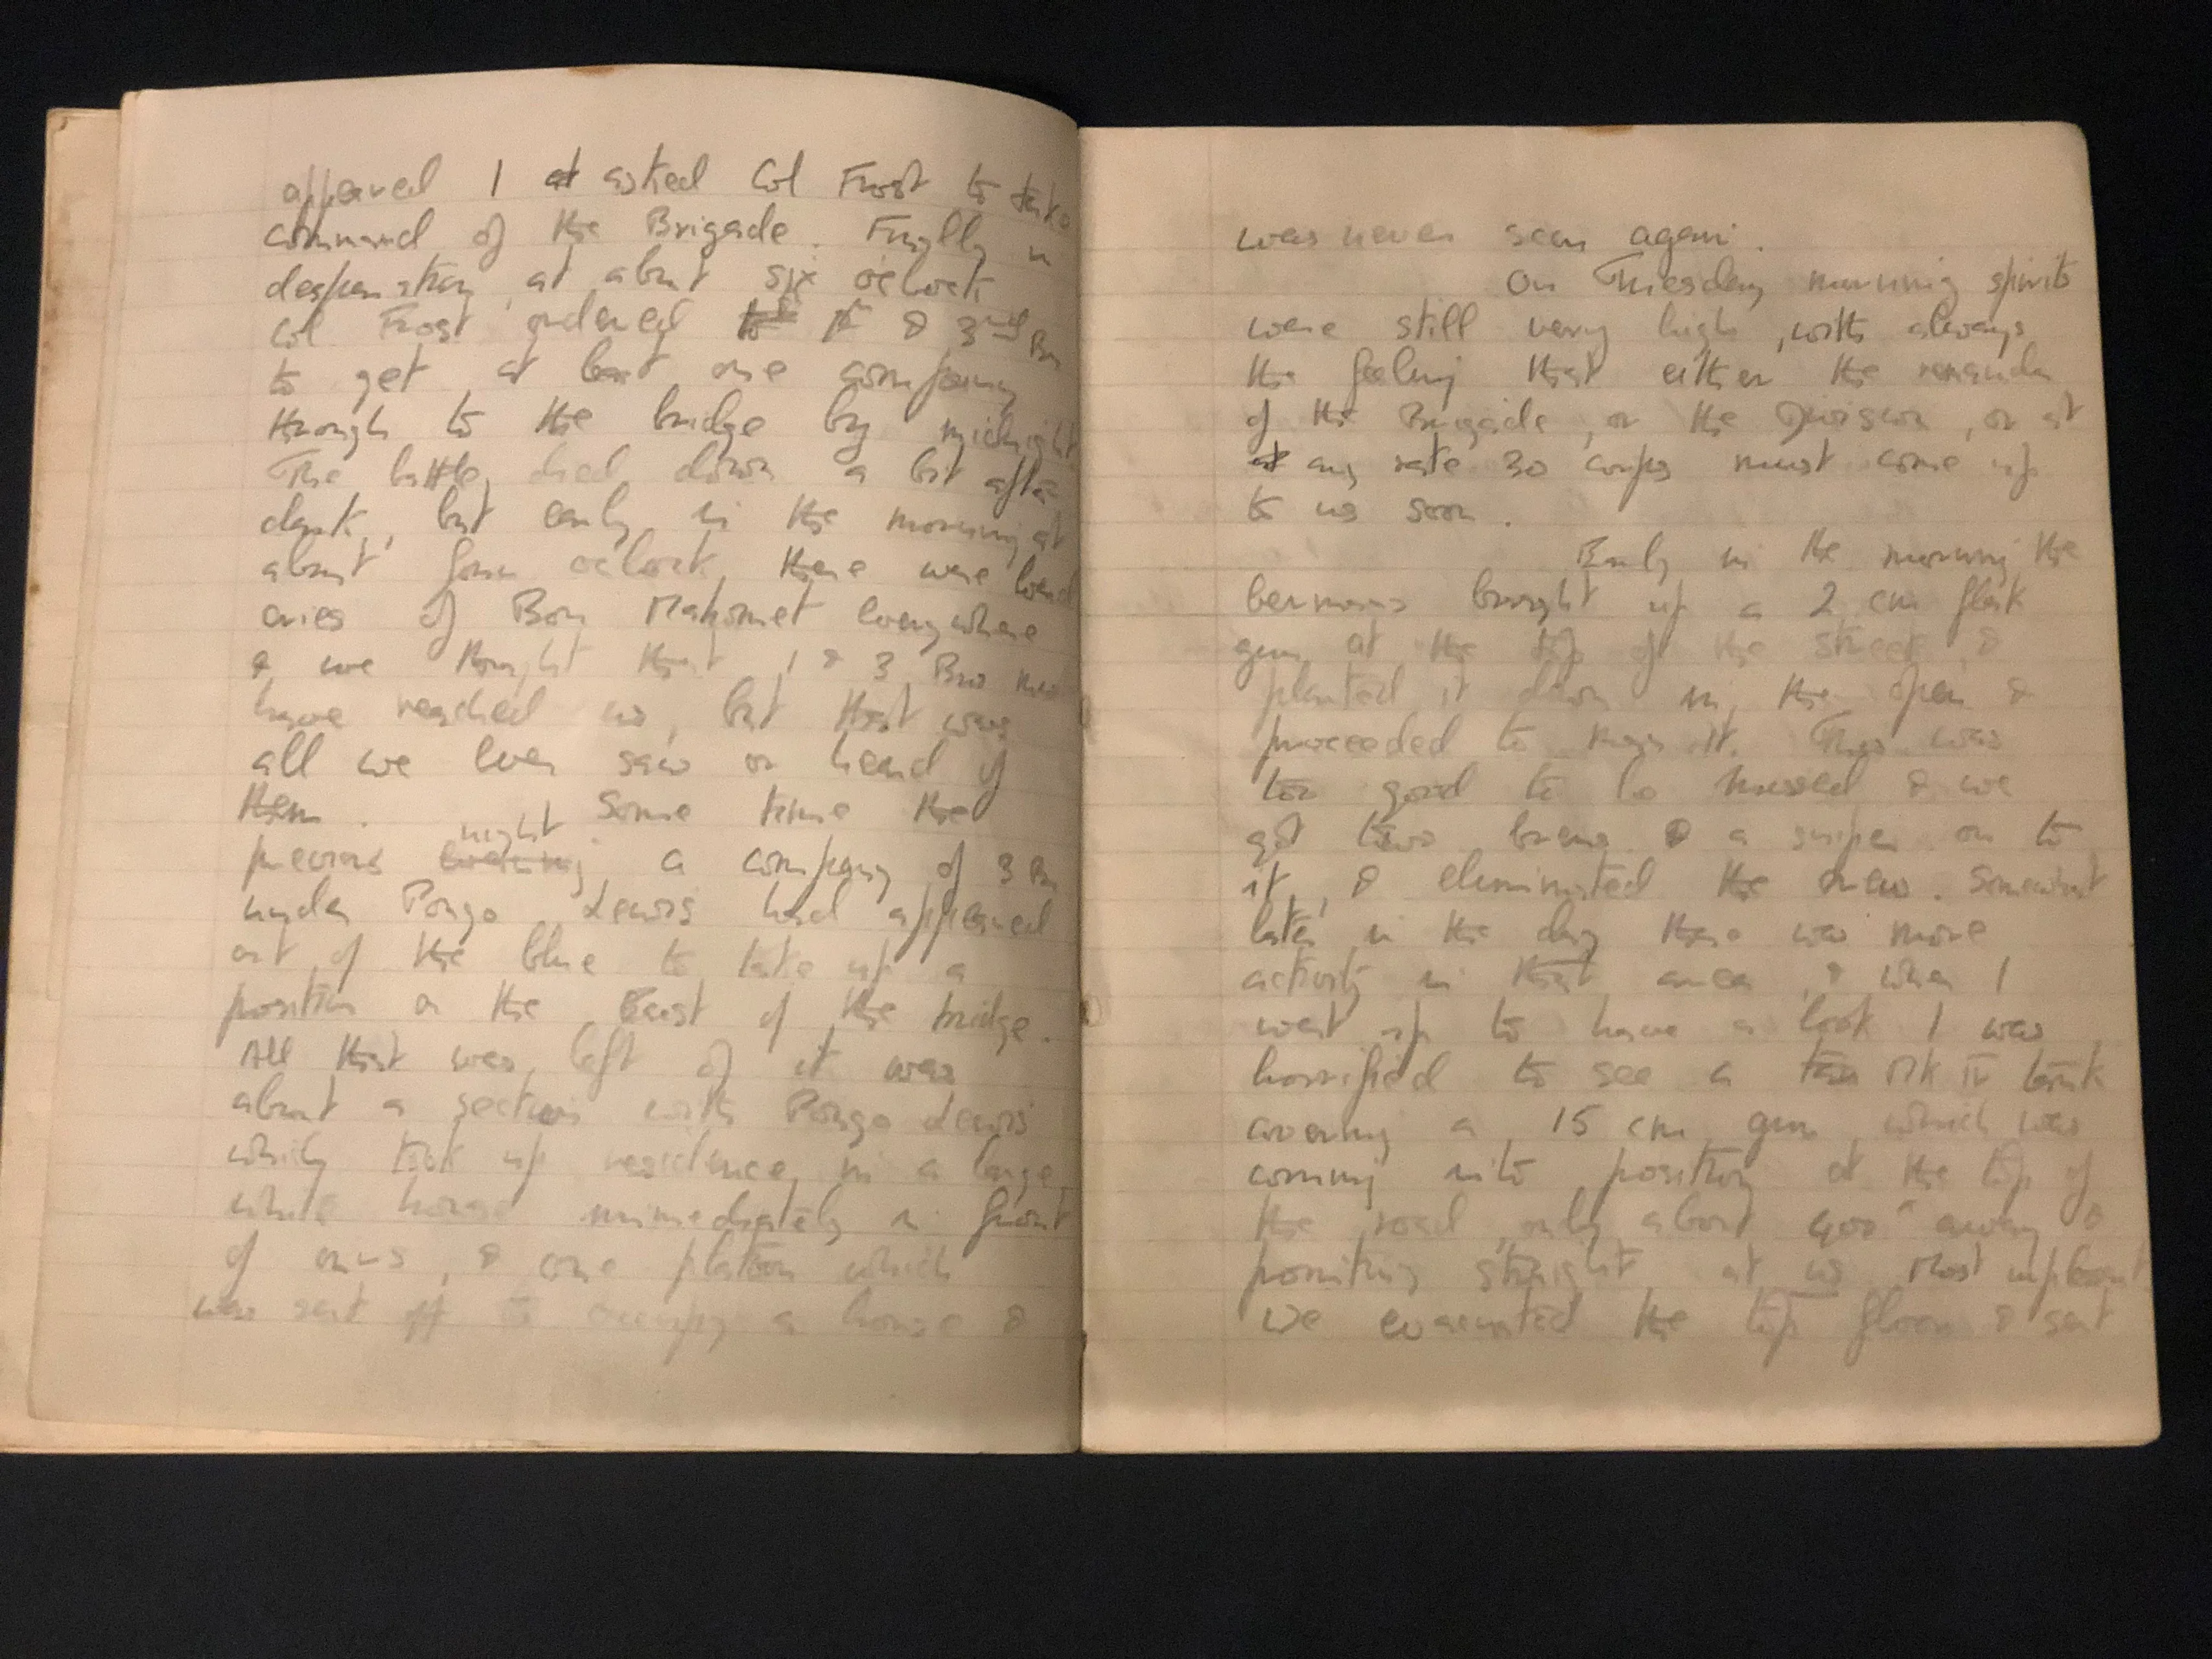 appeared I at asked Col Frost to take
command of the Brigade. Finally in
desperation, at about six oclock
Col Frost ordered to 1st & 3rd Bn
to get at least one company
through to the bridge by midnight
The battle died down a bit after
dark, but early in the morning at
about four oclock, there were loud
cries of Boy Mahomet everywhere
& we thought that 1 & 3 Bns must
have reached us, but that was
all we ever saw or heard of
them. Some time the
previous evening night a company of 3 Bn
under Pongo Lewis had appeared
out of the blue to take up a
position on the East of the bridge.
All that was left of it was
about a section with Pongo Lewis
which took up residence in a large
white house immediately in front
of ours, & one platoon which
was sent off to occupy a house &
was never seen again.
On Tuesday morning spirits
were still very high, with always
the feeling that either the remainder
of the Brigade, or the Division, or at
at any rate 30 corps must come up
to us soon.
Early in the morning the
Germans brought up a 2 cm flak
gun at the top of the street, &
planted it down in the open &
proceeded to man it. This was
too good to be missed & we
got two brens & a sniper on to
it, & eliminated the crew. Somewhat
later in the day there was more
activity in that area, & when I
went up to have a look I was
horrified to see a Mk IV tank
covering a 15 cm gun, which was
coming into position at the top of
the road, only about 400x away &
pointing straight at us. Most unpleasant
We evacuated the top floor & sent